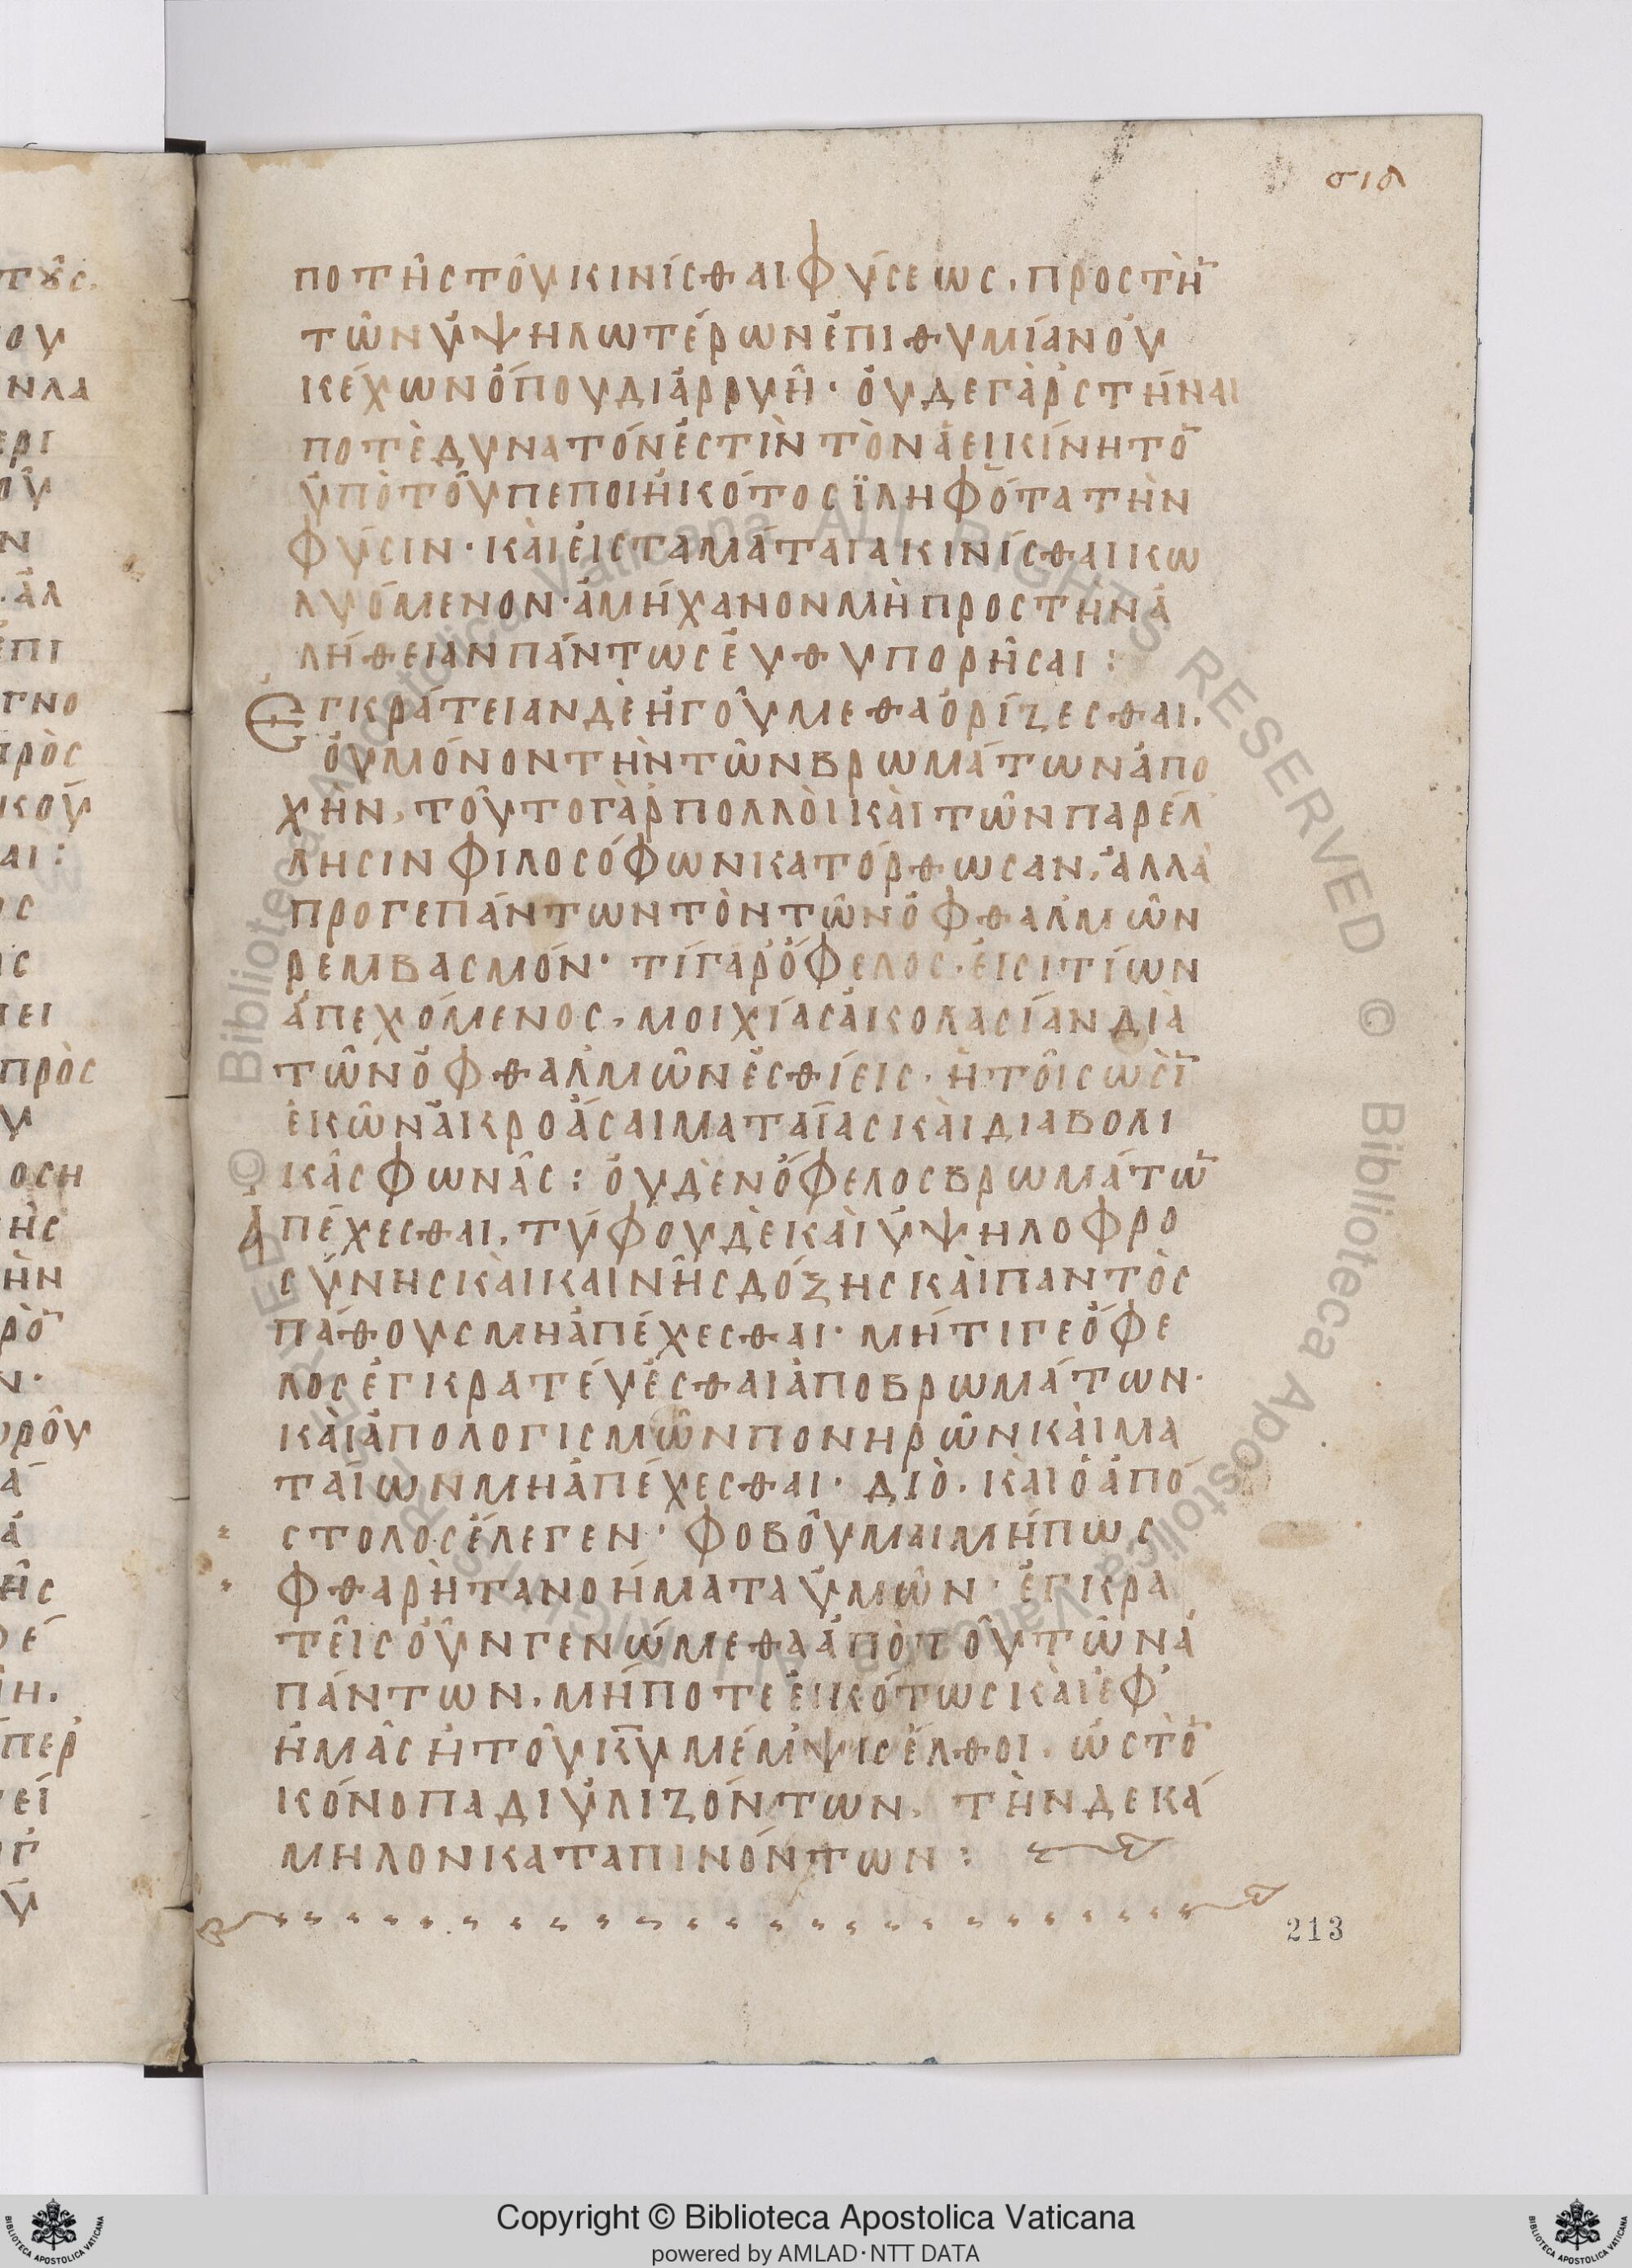 σιδ
ποτῆςτοῦκινίσθαιφύσεως, προςτὴ̄
τῶνὑψηλωτέρωνἐπιθυμίανοὐ
κέχωνὅπουδιάρρυῆ· οὐδεγὰρστῆναι
ποτὲδυνατόνἐστὶντὸνἀεικίνητο̄
ὑπὸτοῦπεποιηκότοςϊληφότατὴν
φύσιν· καὶεἰςταμάταιακινίσθαικω
λυόμενον· ἀμήχανονμὴπροςτὴνἀ
λήθειανπάντωςεὐθυπορῆσαι :
Ἐγκράτειανδὲἡγοῦμεθαὁρίζεσθαι,
οὐμόνοντὴντῶνβρωμάτωνἀπο
χὴν, τοῦτογὰρπολλοὶκαὶτῶνπαρέλ
λησινφιλοσόφωνκατόρθωσαν, ἀλλὰ
προγεπάντωντὸντῶνὀφθαλμῶν
ρεμβασμόν· τίγάρὄφελος, εἰσιτίων
ἀπεχόμενος, μοιχίασἀκολασίανδιὰ
τῶνὀφθαλμῶνἐσθίεις, ἢτοῖςωσὶ̄
ἑκῶνἀκροάσαιματαίαςκαὶδιαβολι
κὰςφωνὰς : οὐδὲνὄφελοςβρωμάτω̄
Ἀπέχεσθαι, τύφουδὲκαὶὑψηλοφρο
σύνηςκαὶκαινῆςδόξηςκαὶπαντὸς
πάθουςμηἀπέχεσθαι· μήτιγεὄφε
λοςἐγκρατέυεσθαιἀποβρωμάτων·
καὶἀπολογισμῶνπονηρῶνκαὶμα
ταίωνμηἀπέχεσθαι· διὸ, καὶὁἀπό
στολοςἔλεγεν· φοβοῦμαιμήπως
φθαρῆτανοήματαὑμῶν· ἐγκρα
τεῖςοὖνγενώμεθαἀπὸτοῦτῶνἁ
πάντων, μήποτεεἰκότωςκαὶἐφ'
ἡμᾶςἡτοῦκ̄ῡμέμψιςἔλθοι, ὡςτὸ̄
κόνοπαδιυλιζόντων, τὴνδεκά
μηλονκαταπινόντων :
213